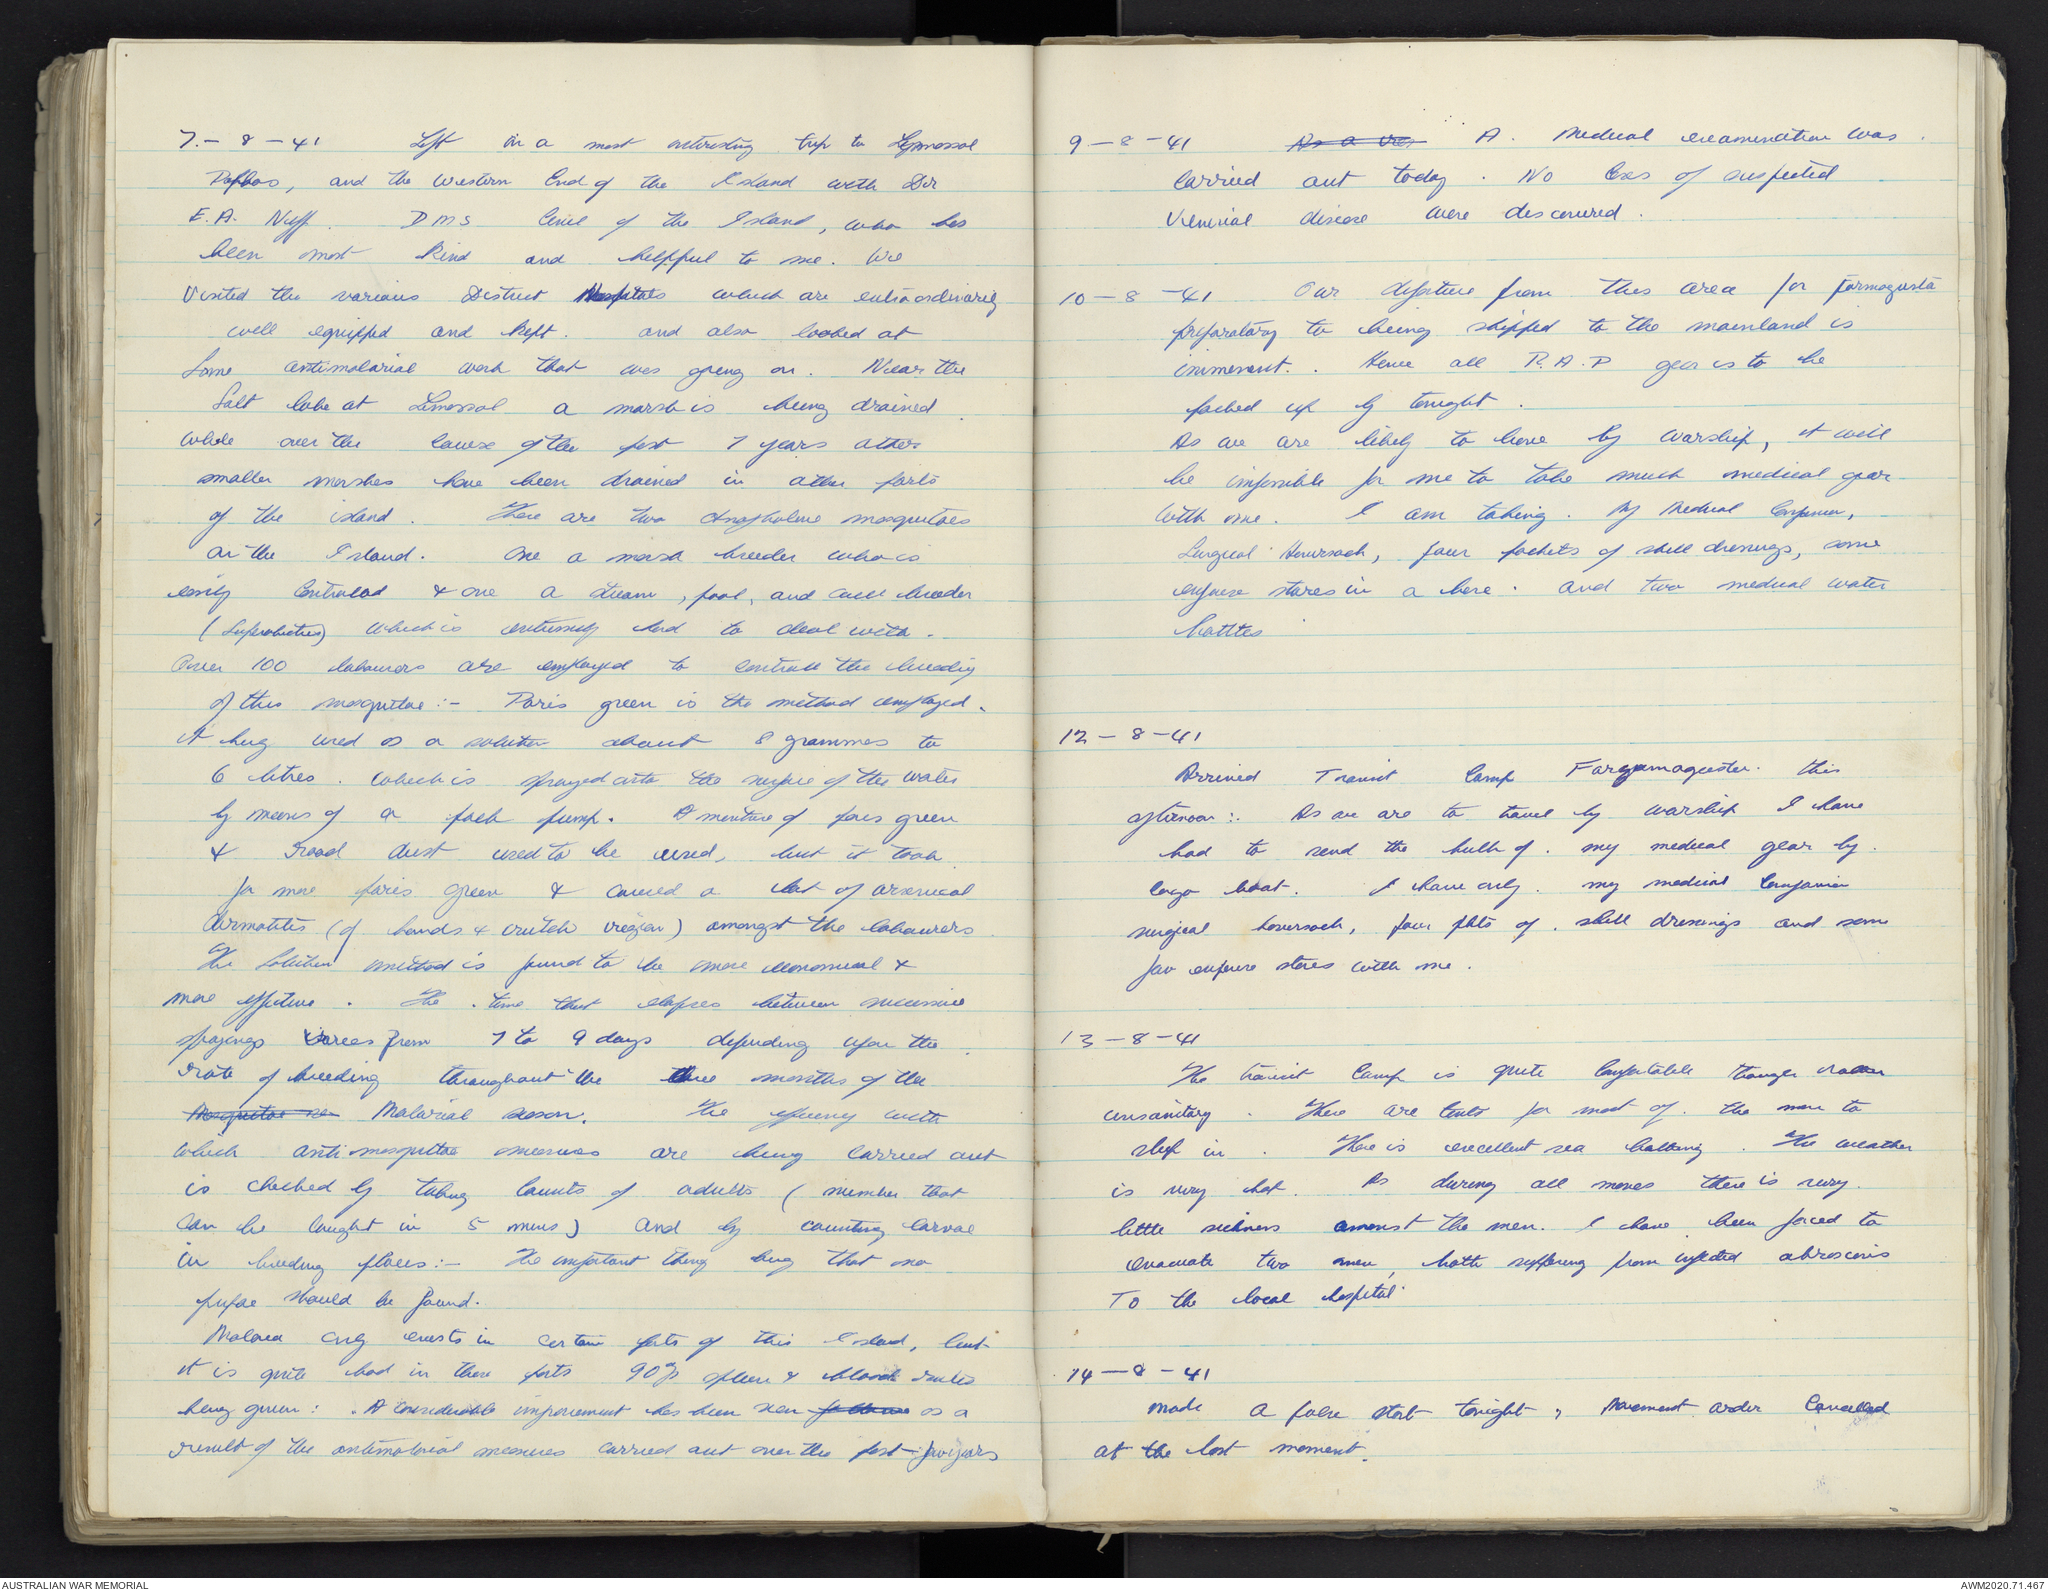 7 - 8 - 41 Left on a most interesting trip to Limossol
Paphos, and the western End of the Island with Dr
E.A. Neff. DMS Civil of the Island, who has
been most kind and helpful to me. We
visited the various District Hospitals which are extraordinarily
well equipped and kept. and also looked at
Some antimalarial work that was going on. Near the
Salt lake at Limossol a marsh is being drained
while over the course of the past 7 years other
smaller marshes have been drained in other parts
of the island. There are two Anopheline mosquitoes
on the Island. One a marsh breeder who is
easily Controlled & one a stream, pool, and well breeder
(Superpictus) which is extremely hard to deal with.
Over 100 labourers are employed to controll the breeding
of this mosquitoe :- Paris green is the method employed.
it being used as a solution about 8 grammes to
6 litres. which is sprayed onto the surface of the water
by means of a pack pump. A mixture of paris green
& road dust used to be used, but it took
far more paris green & caused a lot of arsenical
dermatitis (of hands & crutch region) amongst the labourers
The Solution method is found to be more economical &
more effective. The time that elapses between successive
sprayings varies from 7 to 9 days depending upon the
rate of breeding throughout the three months of the
Mosquitoe sea Malarial season. The efficiency with
which anti-mosquitoe measures are being carried out
is checked by taking Counts of adults (number that
can be caught in 5 mins) and by counting larvae
in breeding places :- The important thing being that no
pupae should be found.
Malaria only exists in certain parts of this Island, but
it is quite bad in these parts 90% spleen & blood rates
being given: A considerable improvement has been seen as a
result of the antimalarial measures carried out over the past few years
9 - 8 - 41 As a res A. Medical examination was
Carried out today. No Cases of suspected
Venerial disease were discovered.
10 - 8 - 41 Our departure from this area for Farmagusta
preparatory to being shipped to the mainland is
imminent. Hence all R.A.P gear is to be
packed up by tonight.
As we are likely to leave by warship, it will
be impossible for me to take much medical gear
with me. I am taking. My Medical Companion,
Surgical Haversack, four packets of shell dressings, some
expense stores in a box. and two medical water
bottles
12 - 8 - 41
Arrived Transit Camp Fargamaguster this
afternoon :. As we are to travel by warship I have
had to send the bulk of. my medical gear by.
cargo boat. I have only. my medical Companion
surgical haversack, four pkts of. shell dressings and some
few expense stores with me.
13 - 8 - 41
The transit Camp is quite Comfortable though
unsanitary. There are tents for most of. the men to
sleep in. There is excellent sea bathing. The weather
is very hot. As during all moves there is very.
little sickness amonst the men. I have been forced to
evacuate two men, both suffering from infected abrascions
To the local hospital.
14 - 8 - 41
Made a false start tonight, Movement order Cancelled
at the last moment.
AUSTRALIAN WAR MEMORIAL
AWM2020.71.467